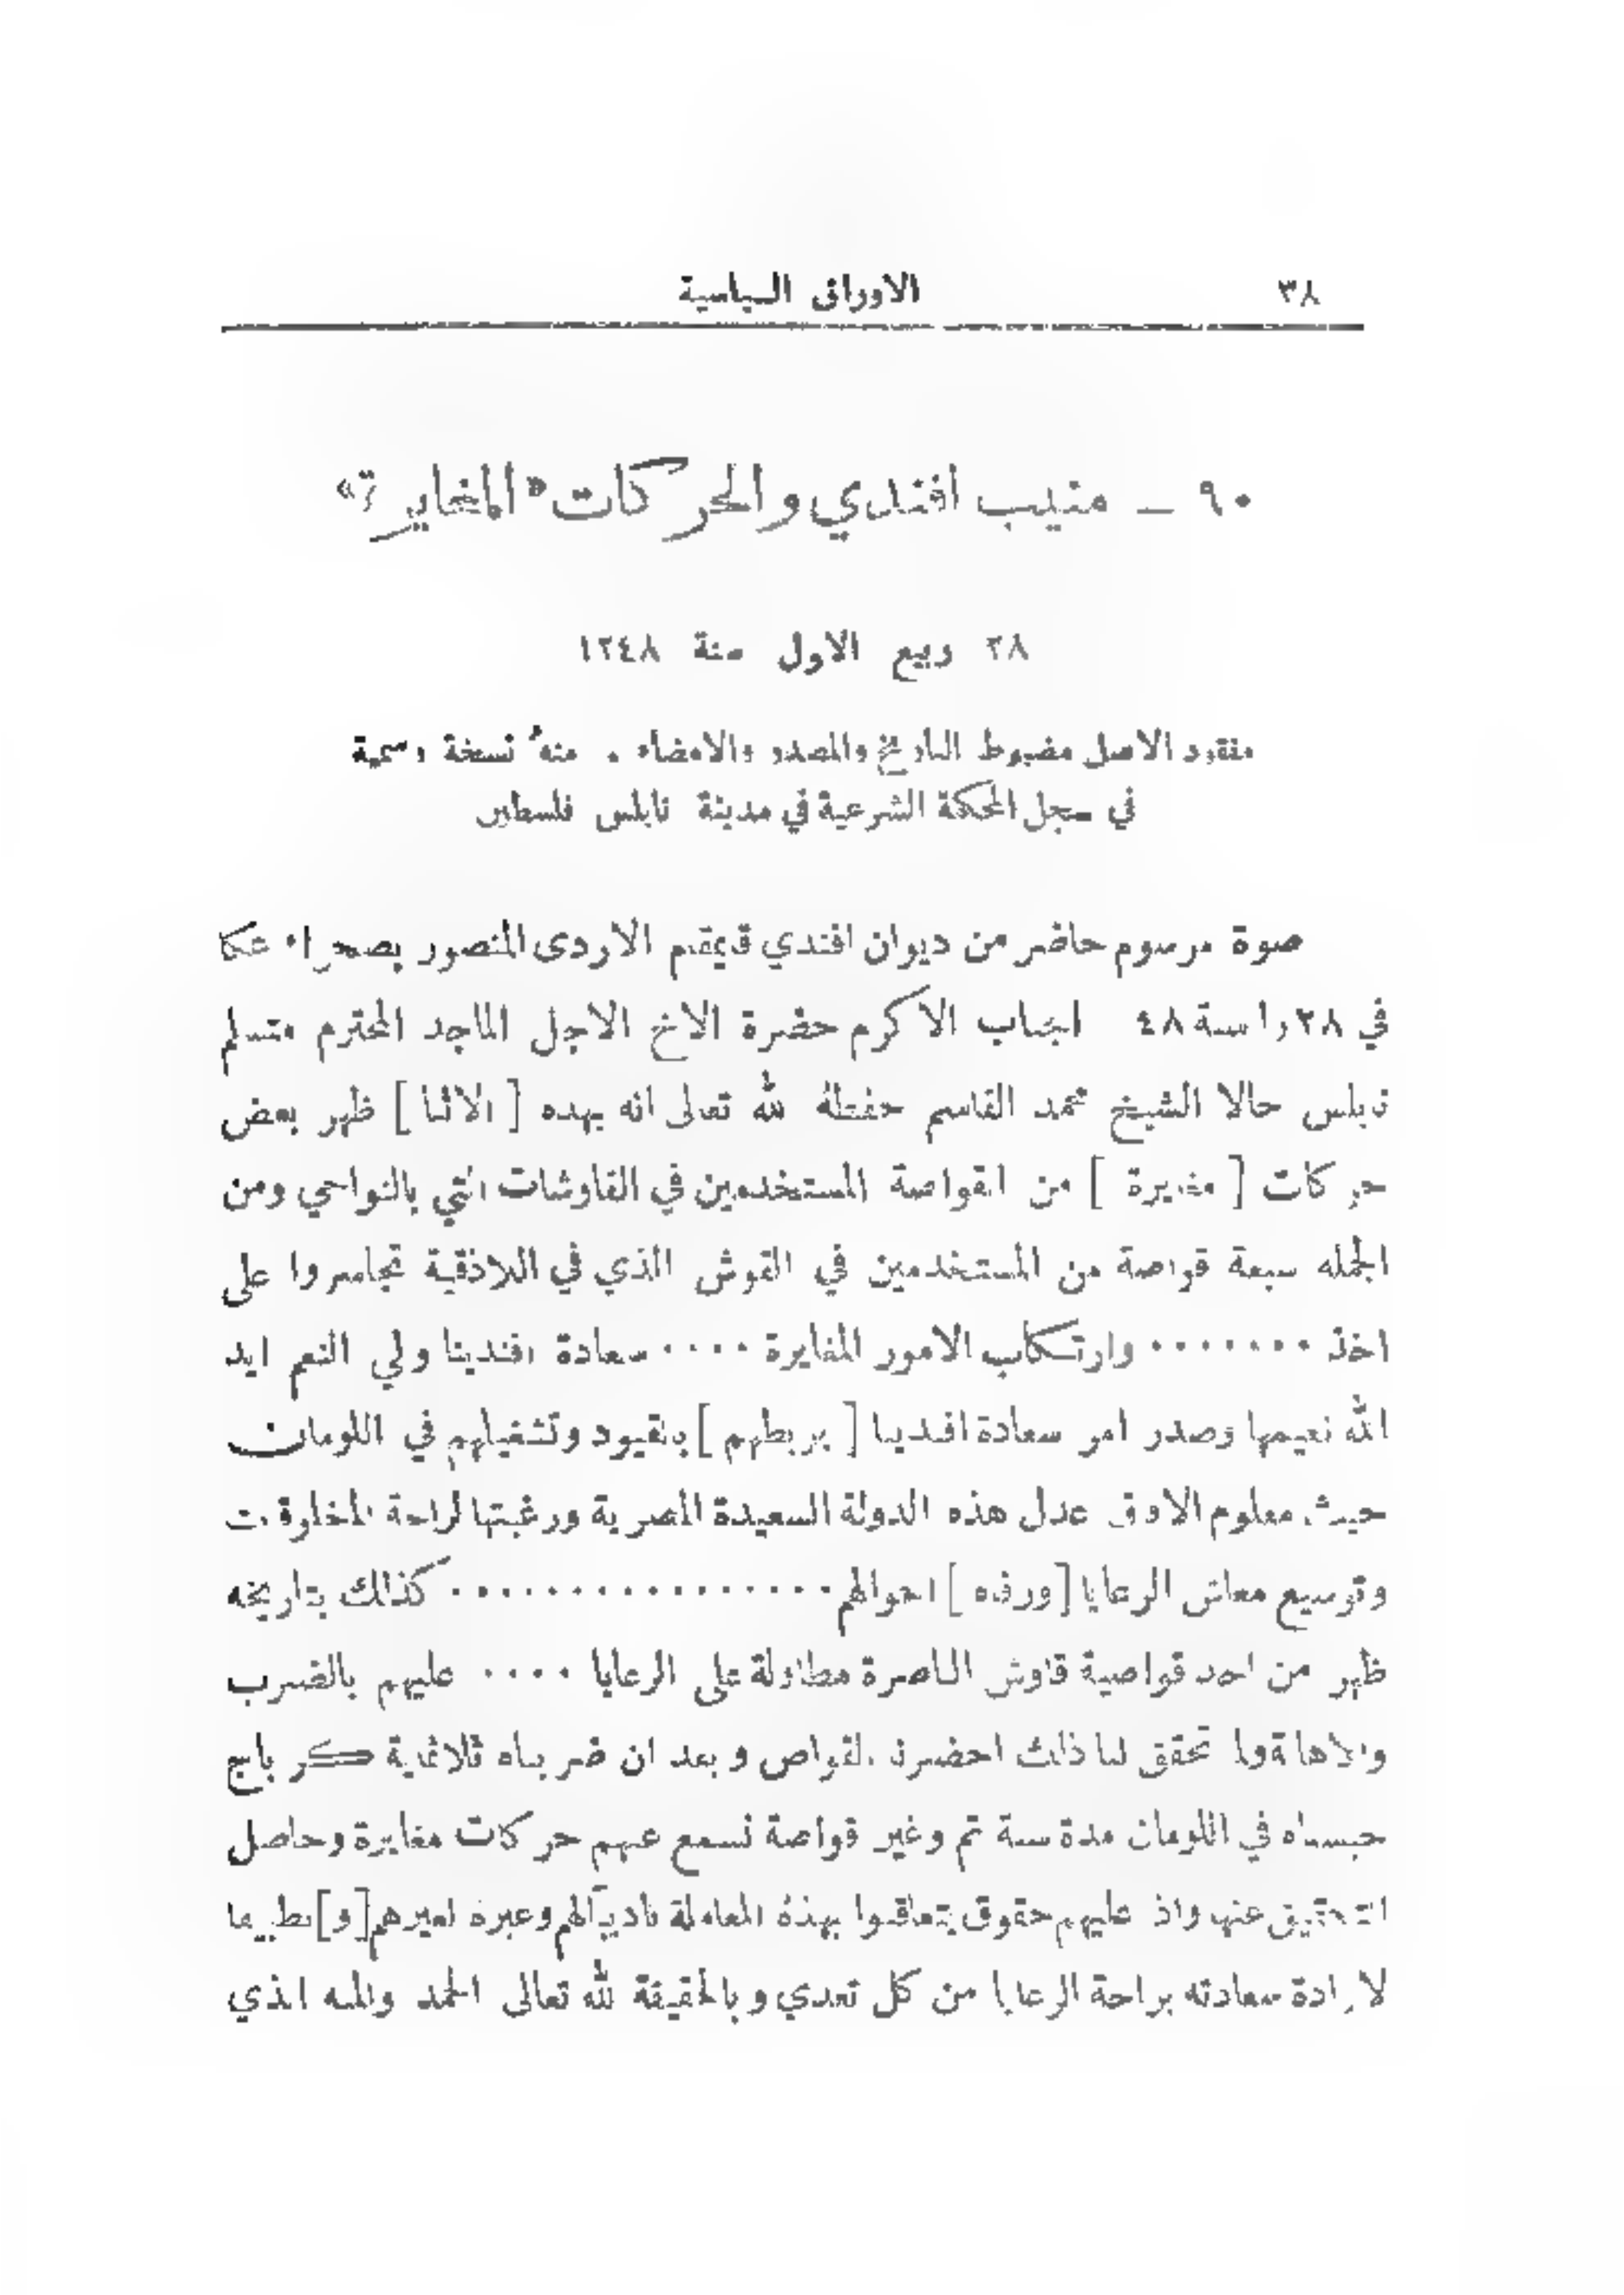 ٣٨ الاوراق السياسية
٩٠ — منيب افندي والحركات «المغايرة»
٢٨ ربيع الاول سنة ١٢٤٨
مفقود الاصل مضبوط التاريخ والمصدر والامضاء . منهُ نسخة رسمية
في سجل المحكمة الشرعية في مدينة نابلس فلسطين
صوة مرسوم حاضر من ديوان افندي قيمقم الاردى المنصور بصحراء عكا
في ٢٨ را سنة ٤٨ الجناب الاكرم حضرة الاخ الاجل الماجد المحترم متسلم
نابلس حالا الشيخ محمد القاسم حفظهُ الله تعالى انه بهده [ الاثنا ] ظهر بعض
حركات [ مغايرة ] من القواصة المستخدمين في القاوشات التي بالنواحي ومن
الجمله سبعة قواصة من المستخدمين في القوش الذي في اللاذقية تجاسروا على
اخذ ٠٠٠٠٠٠٠ وارتكاب الامور المغايرة ٠٠٠٠ سعادة افندينا ولي النعم ايد
الله نعيمها وصدر امر سعادة افندينا [ بربطهم ] بالقيود وتشغيلهم في اللومان
حيث معلوم الافاق عدل هذه الدولة السعيدة المصرية ورغبتها لراحة المخلوقات
وتوسيع معاش الرعايا [ ورفاه ] احوالهم ٠٠٠٠٠٠٠٠٠٠٠٠٠٠٠٠ كذلك بتاريخه
ظهر من احد قواصية قاوش الناصرة مطاولة على الرعايا ٠٠٠٠ عليهم بالضرب
والاهانة ولما تحقق لنا ذلك احضرنا القواص وبعد ان ضربناه ثلاثماية كرباج
حبسناه في اللومان مدة سنة تم وغير قواصة نسمع عنهم حركات مغايرة وحاصل
التحقيق عنها واذ عليهم حقوق يتعاقبوا بهذهُ المعاملة تاديباً لهم وعبرة لغيرهم [و]
لارادة سعادته براحة الرعايا من كل تعدي وبالحقيقة لله تعالى الحمد والمنه الذي